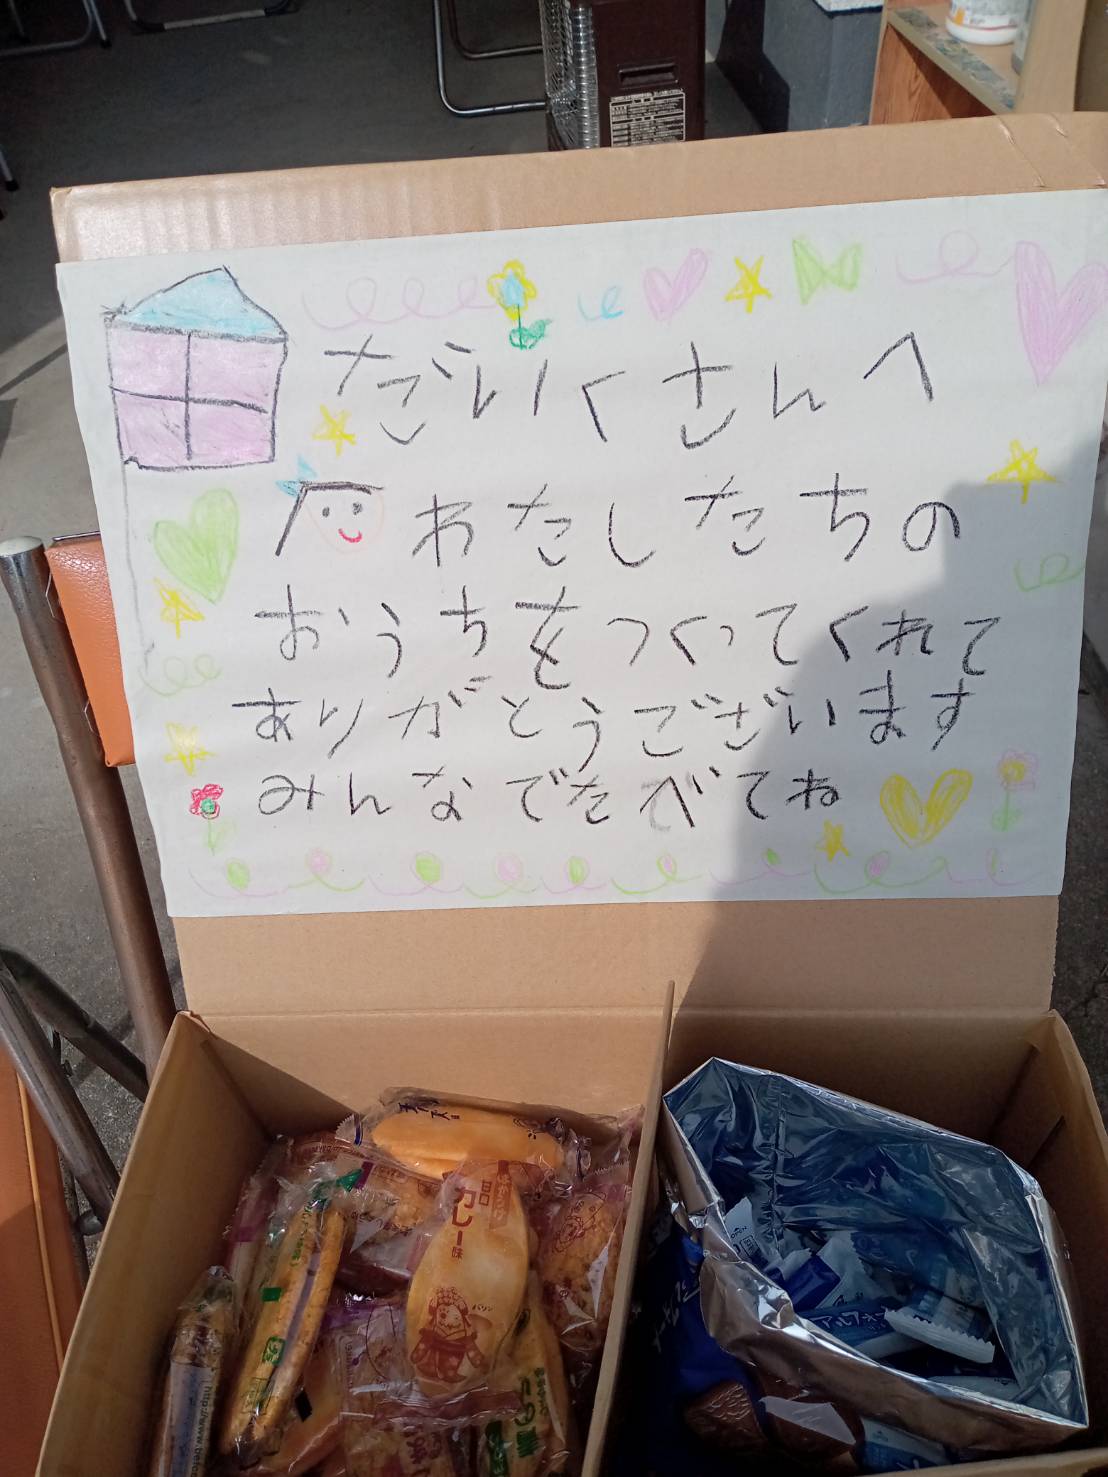 だいくさんへ
わたしたちの
おうちをつくってくれて
ありがとうございます
みんなでたべてね
甘口
カレー味
バリン
アルフォ